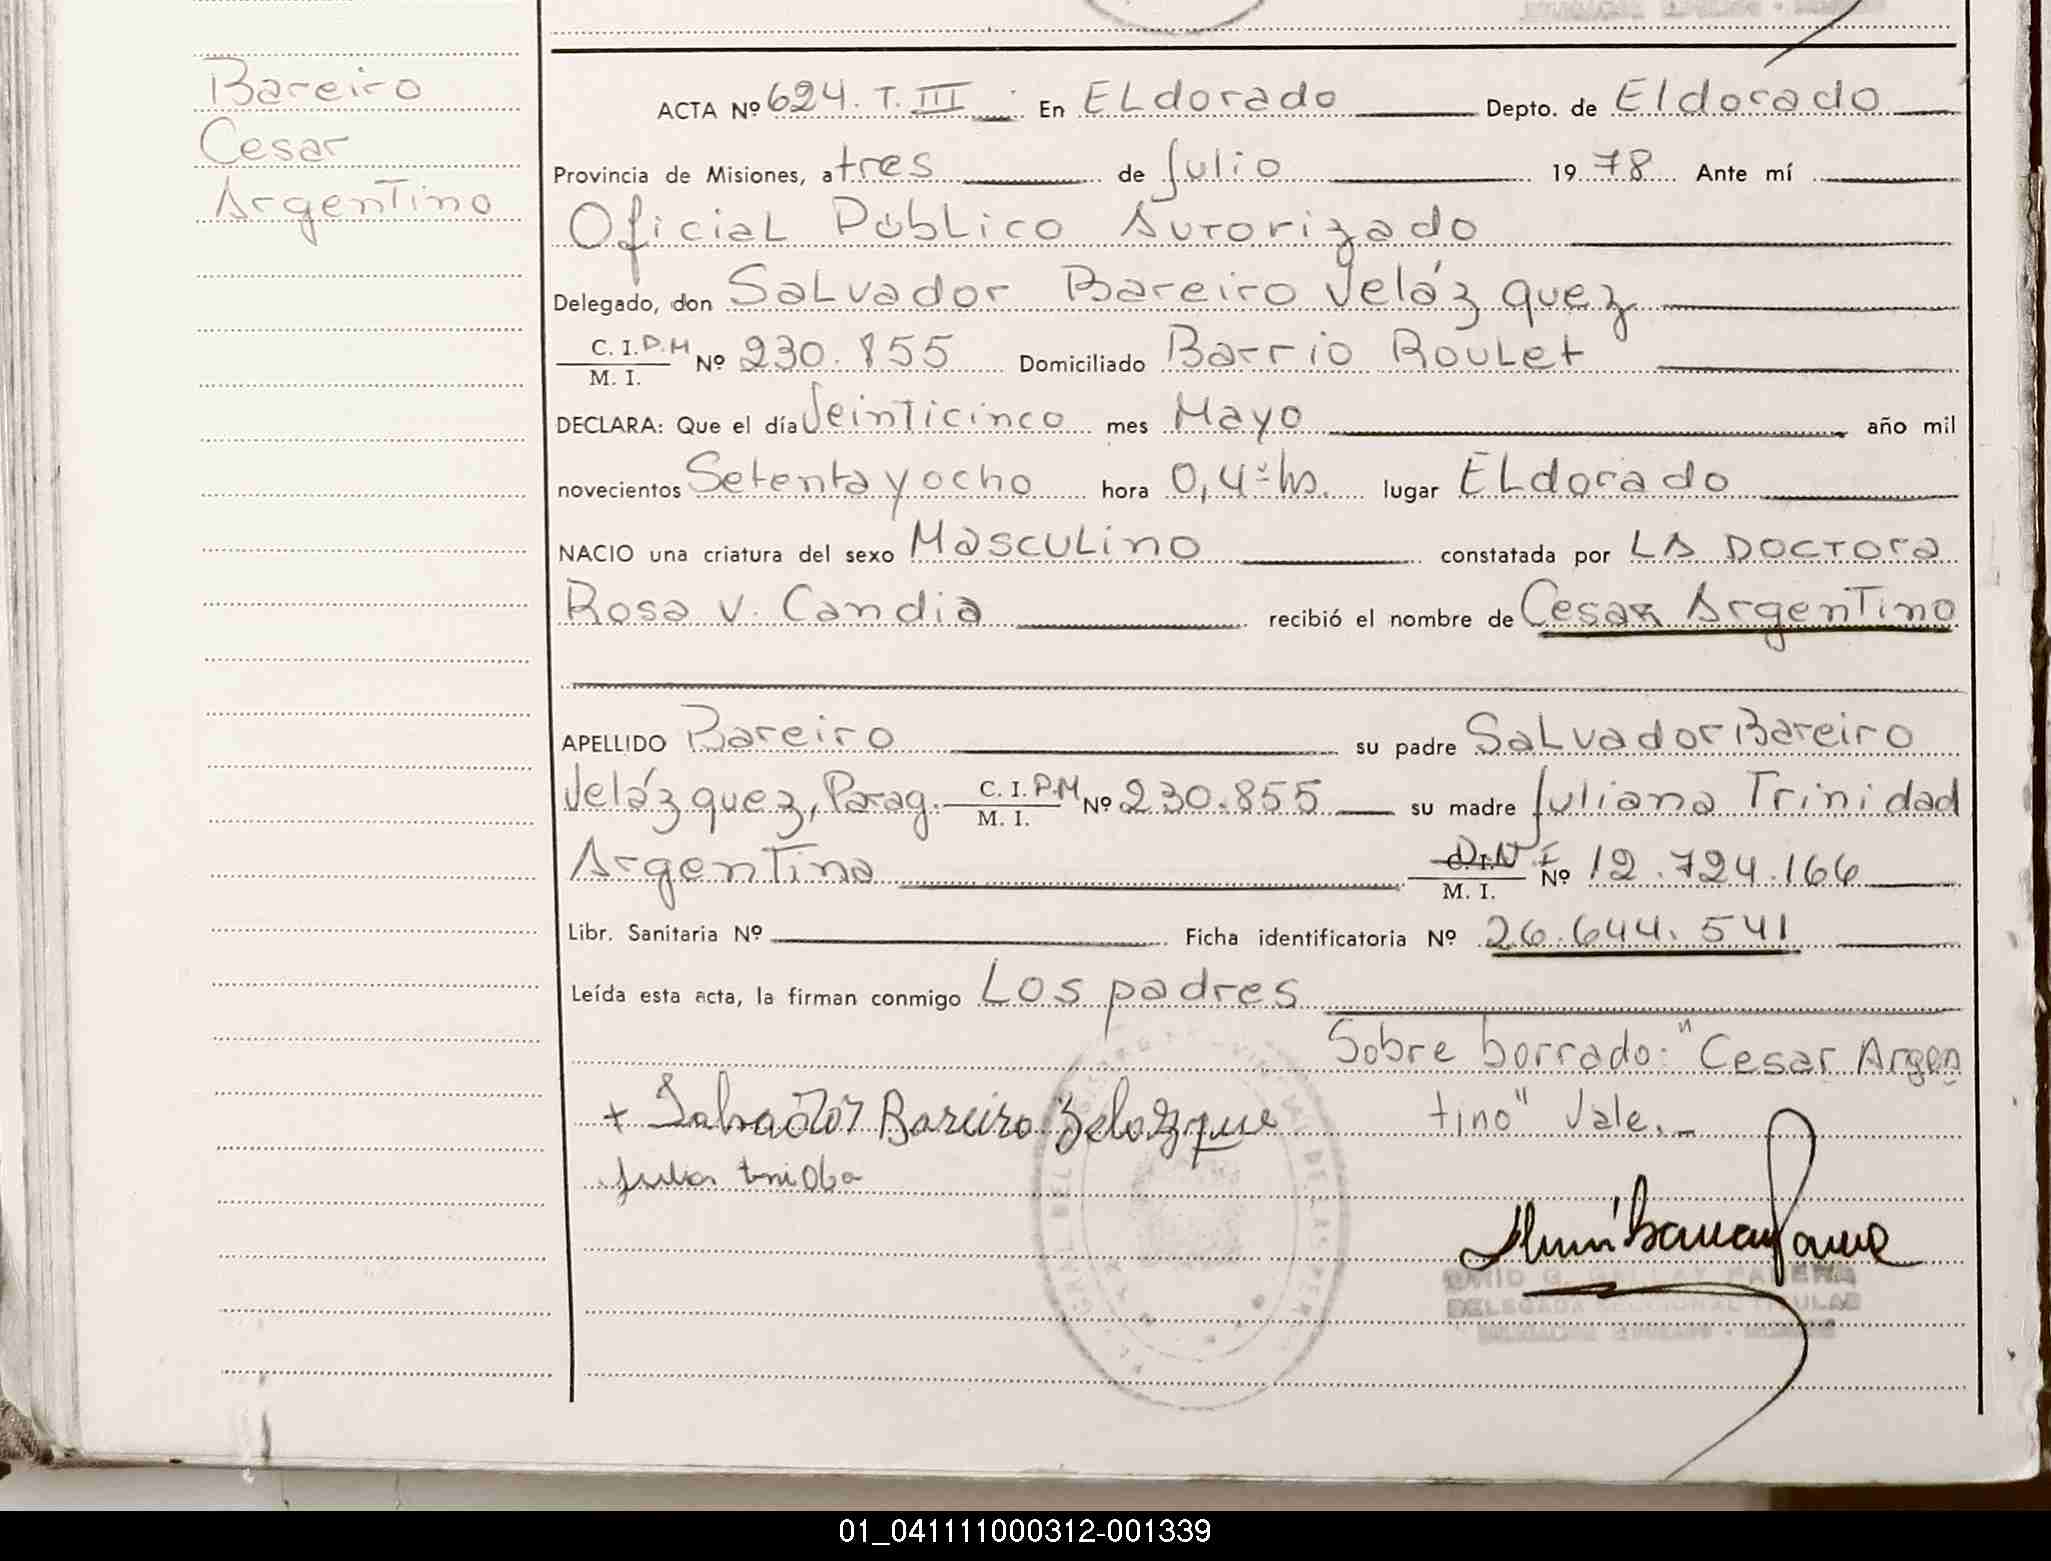 Bareiro
Cesar
Argentino
ACTA Nº 624. T. III En ELdorado Depto. de Eldorado
Provincia de Misiones, a tres de Julio 1978 Ante mí
Oficial Público Autorizado
Delegado, don Salvador Bareiro Velázquez
C. I. P.M Nº 230.855 Domiciliado Barrio Roulet
M. I.
DECLARA: Que el día Veinticinco mes Mayo año mil
novecientos Setenta y ocho hora 0,4º hs. lugar ELdorado
NACIO una criatura del sexo Masculino constatada por LA DOCTORA
Rosa V. Candia recibió el nombre de Cesar Argentino
APELLIDO Bareiro su padre Salvador Bareiro
Velázquez, Parag. C. I. P.M Nº 230.855 su madre Juliana Trinidad
M. I.
Argentina D.N.I. Nº 12.724.166
M. I.
Libr. Sanitaria Nº Ficha identificatoria Nº 26.644.541
Leída esta acta, la firman conmigo Los padres
Sobre borrado: "Cesar Argen
tino" Vale.-
+ Salvador Bareiro Velazque
DELEGADA SECCIONAL TITULAR
01_041111000312-001339